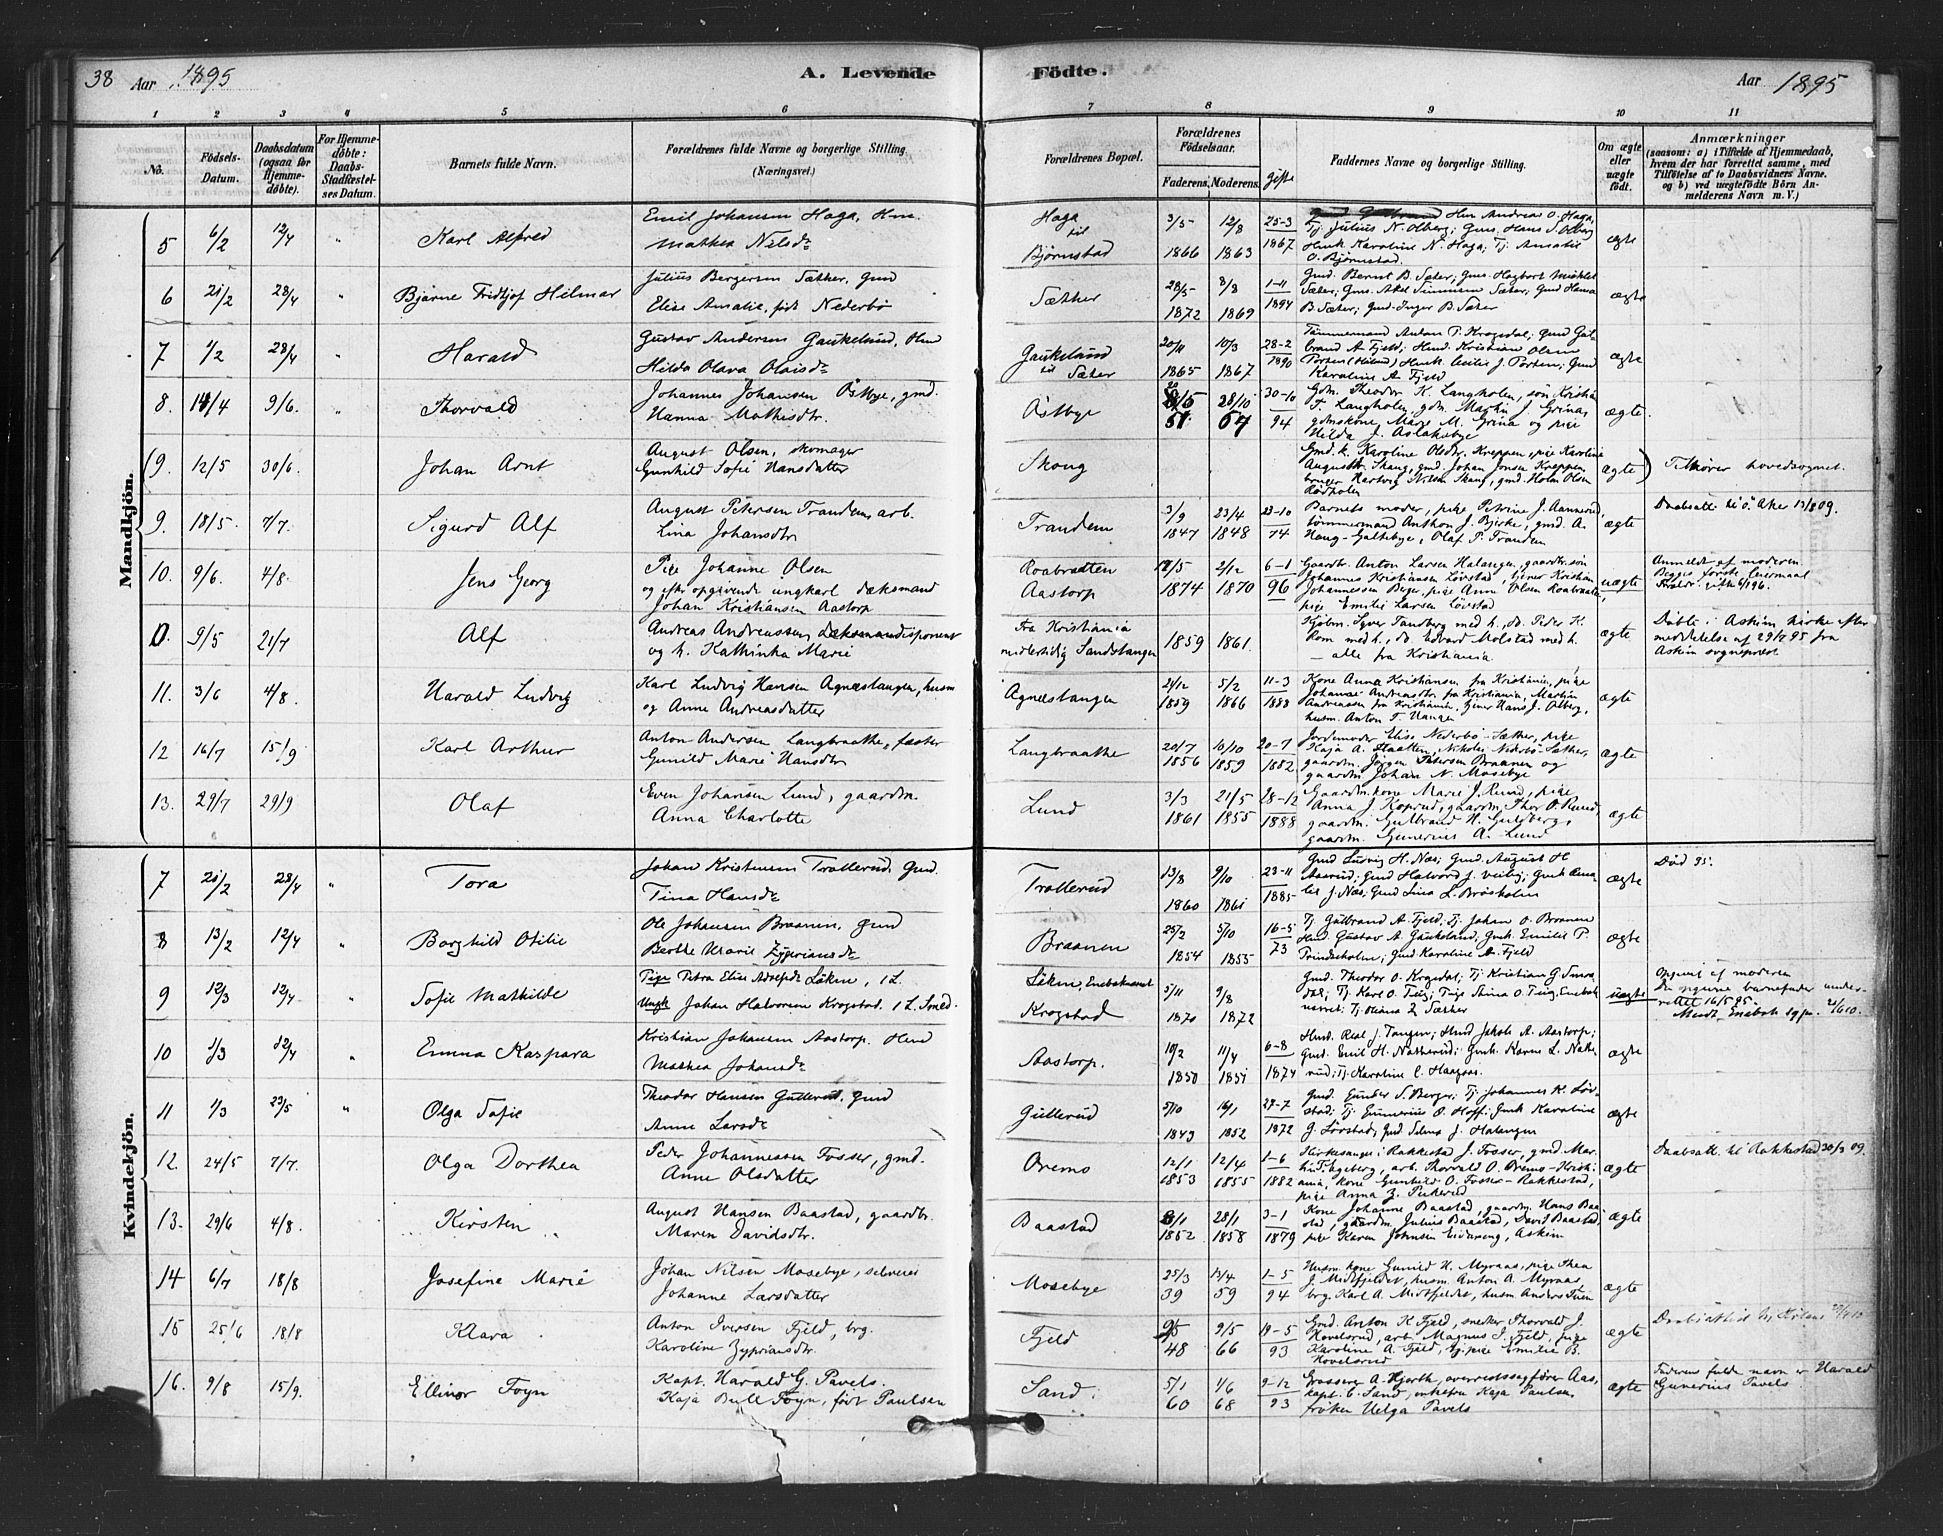 38 Aar 1895 A. Levende Födte. Aar 1895
1 2 3 4 5 6 7 8 9 10 11
No.
Födsels-
Datum.
Daabsdatum
(ogsaa for
Hjemme-
döbte).
For Hjemme-
döbte:
Daabs-
Stadfæstel-
ses Datum.
Barnets fulde Navn.
Forældrenes fulde Navne og borgerlige Stilling
(Næringsvei.)
Forældrenes Bopæl.
Forældrenes
Födselsaar.
Faderens. Moderens.
gifte
Faddernes Navne og borgerlige Stilling.
Om ægte
eller
uægte
födt.
Anmærkninger
(saasom: a) i Tilfælde af Hjemmedaab,
hvem der har forrettet samme, med
Tilföielse af to Daabsvidners Navne.
og b) ved uægtefödte Börn An-
melderens Navn m. V.)
Mandkjön.
5 6/2 12/4 " Karl Alfred
Emil Johansen Haga, Hm.
Mathea Nilsdr
Haga
til
Bjørnstad
3/5 1866 12/8 1863 25-3 1867
Hm Andreas O. Haga,
Tj. Julius N. Olberg; Gms. Hans J. Olberg
Hmk Karoline N. Haga; Tj. Amalie
O. Bjørnstad.
ægte
6 21/2 28/4 " Bjarne Fridtjof Hilmar
Julius Bergersen Sæther, Gmd
Elise Amalie, født Nederbø
Sæther
28/5 1872 8/8 1869 1-11 1894
Gmd. Bernt B. Sæter; Gms. Hagbart Michlet
Sæter; Gms. Axel Simensen Sæter; Gmd Hanna
B. Sæter; Gmd. Inger B. Sæter
ægte
7 1/2 28/4 " Harald
Gustav Andersen Gaukelund, Hmd
Hilda Olava Olaisdr
Gaukelund
til Sæter
20/11 1865 10/3 1867 28-2 1890
Tømmermand Anton P. Krogsdal; Gmd Gul-
brand A. Fjeld; Hmd. Kristian Olsen
Porten; Hmk. Cecilie J. Porten; Gmd
Karoline A. Fjeld
ægte
8. 14/4 9/6. " Thorvald
Johannes Johansen Østbye, gmd.
Hanna Mathisdtr.
Østbye
51. 28/10 67 30-10 94
Gdm. Theodor K. Langholen, søn Kristian
F. Langholen, gdm. Martin J. Grina,
gdmskone Marie M. Grina og pige
Hilda J. Aslaksbye
ægte.
(9. 12/5 30/6. Johan Arnt
August Olsen, skomager
Gunhild Sofie Hansdatter
Skoug
Gmd. k. Karoline Olsdtr. Kreppen, pige Karoline
Augustdtr. Skoug, gmd. Johan Jensen Kreppen
bruger Hartvig Nilsen Skoug, gmd. Holm Olsen
Rødholen
ægte) Tilhører hovedsognet.
9. 18/5. 7/7. Sigurd Alf
August Petersen Trandem, arb.
Lina Johansdtr
Trandem
3/9 1847 23/4 1848 23-10 74
Barnets moder, pige Petrine J. Aannerud,
tømmermand Anthon J. Bjerke, gmd. A.
Haug-Galtebye, Olaf P. Trandem
ægte
Daabsatt. til Ø. Aker 13/8 09.
10. 9/6. 4/8. Jens Georg
Pige Johanne Olsen
og efter opgivende ungkarl dæksmand
Johan Kristiansen Aastorp
Roabraaten
Aastorp
1874 2/12 1870 6-1 96
Gaardbr. Anton Larsen Halangen, gaardbr. søn
Johannes Kristiansen Løvstad, tjener Kristian
Johannessen Berger, pige Anne Olsen Roabraaten,
pige Emilie Larsen Løvstad
uægte
Anmeldt af moderen
Begges første Leiermaal
0. 9/5 21/7 Alf
Andreas Andreassen, disponent
og h. Kathinka Marie
Fra Kristiania
midlertidig Sandstangen
1859 1861.
Kjøbm. Syver Tandberg med h., do. Peder K.
Rom med h., do. Edvard Molstad med h.
— alle fra Kristiania.
ægte
Døbt i Askim kirke efter
meddelelse af 29/7 95 fra
Askim sognepræst
11. 3/6 4/8. Harald Ludvig
Karl Ludvig Hansen Agnæstangen, husm
og Anne Andreasdatter
Agnæstangen
24/12 1859 5/2 1866 11-3 1888
Kone Anna Kristiansen fra Kristiania, pige
Johanne Andreasdtr. fra Kristiania, Martin
Andreassen fra Kristiania, tjener Hans J. Olberg,
husm. Anton T. Hangen
ægte
12 16/7 15/9 Karl Arthur
Anton Andersen Langbraathe, fæster
Gunild Marie Hansdtr
Langbraathe
20/7 1856 10/10 1859 20-7 1882
Jordemoder Elise Nederbø-Sæther, pige
Kaja A. Haatten, Nikolai Nederbø-Sæther,
gaardm. Jørgen Petersen Braanen og
gaardm. Johan N. Mosebye
ægte
13. 29/7 29/9 Olaf
Even Johansen Lund, gaardm.
Anna Charlotte
Lund
3/3 1861 21/5 1855 28-12 1888
Gaardm. kone Marie J. Ruud, pige
Anna J. Koprud, gaardm. Thor O. Ruud,
gaardm. Gulbrand H. Gulsberg,
gaardm. Gunerius A. Lund
ægte
Kvindekjön.
7 21/2 28/4 " Tora
Johan Kristensen Trollerud, Gmd.
Tina Hansdr
Trollerud
13/8 1860 9/10 1861 23-11 1885
Gmd Ludvig H. Næs; Gmd. August H
Aaserud; Gmd Halvord J. Veiby; Gmk Ama-
lie J. Næs; Gmd Lina L. Bråsholm
ægte
Død 95.
8 13/2 12/4 " Borghild Otilie
Ole Johansen Braanen, Gmd
Berthe Marie Zypriansdr
Braanen
25/2 1854 5/10 1855 16-5 73
Tj Gulbrand A. Fjeld; Tj. Johan O. Braanen
Hmd. Gustav A Gaukelund; Gmk. Emilie P.
Prindsholm; Gmd Karoline A. Fjeld
ægte
9 12/3 12/4 " Sofie Mathilde
Pige Petra Elise Adolfsdr Løken, 1 L.
Ungk Johan Halvorsen Krogstad. 1 L. Smed.
Løken, Enebaknæset
Krogstad
5/11 1870 9/8 1872
Gmd. Theodor O. Krogsdal; Tj Kristian G. Smors-
dal; Tj. Karl O. Teig; Pige Stina O. Teig, Enebak-
næset; Tj. Oliana L. Sæther
uægte
Opgivet af moderen
Den opgivne barnefader under-
rettet 16/5 95.
10 1/3 12/4 " Emma Kaspara
Kristian Johansen Aastorp. Hmd
Mathea Johansdr
Aastorp.
10/2 1850 11/4 1851 6-8 1874
Hmd. Karl J. Tangen; Hmd Jakob A. Aastorp;
Gmd. Emil H. Natherud; Gmk. Karen L. Nathe-
rud; Tj. Karoline C. Haagaas.
ægte
11 1/3 23/5 " Olga Sofie
Theodor Hansen Gullerud, Gmd
Anne Larsdr
Gullerud
5/10 1843 16/1 1852 27-7 1872
Gmd. Gunder S. Berger; Tj Johannes K. Løv-
stad; Tj Gunnerius O. Hoff; Gmk Karoline
G. Løvstad, Gmd. Selma J. Halangen
ægte
12. 24/5 7/7. Olga Dorthea
Peder Johannessen Fosser, gmd.
Anne Olsdatter
Oremo
12/1 1853 12/4 1855 1-6 1882
Kirkesanger i Rakkestad J. Fosser, gmd Mar-
tin P. Ageberg, arb. Thorvald O. Oremo-Kristi-
ania, kone Gunhild O. Fosser-Rakkestad,
pige Anna Z. Pukerud
ægte
Daabsatt. til Rakkestad 30/3 09.
13. 29/6 4/8. Kirsten
August Hansen Baastad, gaardbr.
Maren Davidsdtr.
Baastad
8/1 1852 28/1 1858 3-1 1879
Kone Johanne Baastad, gaardm. Hans Baa-
stad, gaardm. Julius Baastad, David Baastad,
pige Karen Johnsen Eidareng, Askim
ægte
14 6/7 18/8 Josefine Marie
Johan Nilsen Mosebye, selveier
Johanne Larsdatter
Mosebye
25/3 39 13/4 59 1-5 94
Husm. kone Gunild H. Myraas, pige Thea
J. Midtfjeldet, husm. Anton A. Myraas,
brg. Karl A. Midtfjeldet, husm Anders Tuen
ægte
15 25/6 18/8 Klara
Anton Iversen Fjeld, brg.
Karoline Zypriansdtr.
Fjeld
48 9/5 66 19-5 93
Gmd. Anton K Fjeld, snekker Thorvald J.
Hovelsrud, arb. Magnus I. Fjeld, pige
Karoline A. Fjeld, tj. pige Emilie B.
Hovelsrud
ægte
16. 9/8 15/9. Ellinor Foyn
Kapt. Harald G. Pavels.
Kaja Bull Foyn, født Paulsen
Sand.
5/1 60 1/6 68 9-12 93
Grosserer A. Hjorth, overretssagfører Aas,
kapt. C. Sand, enkefru Kaja Paulsen,
frøken Helga Pavels
ægte
Faderens fulde navn er Harald
Gunerius Pavels